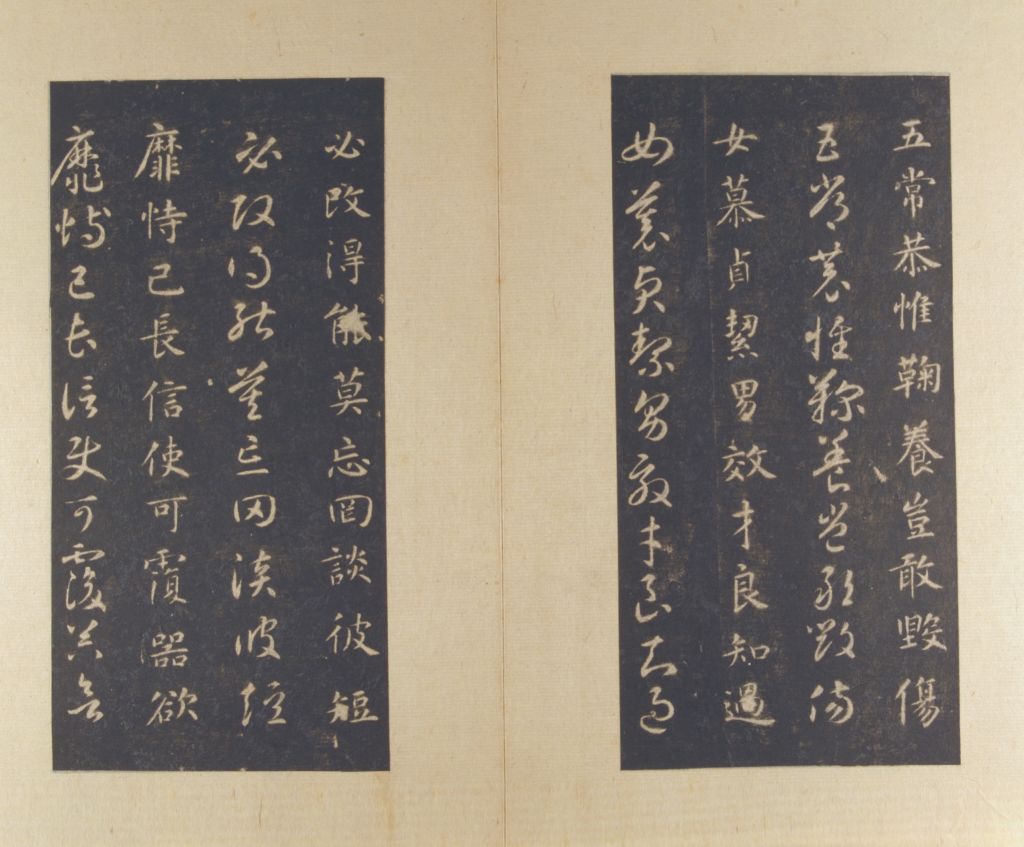 五常恭惟鞠養豈敢毀傷
五常恭惟鞠養豈敢毀傷
女慕貞絜男效才良知過
女慕貞絜男效才良知過
必改得能莫忘罔談彼短
必改得能莫忘罔談彼短
靡恃己長信使可覆器欲
靡恃己長信使可覆器欲